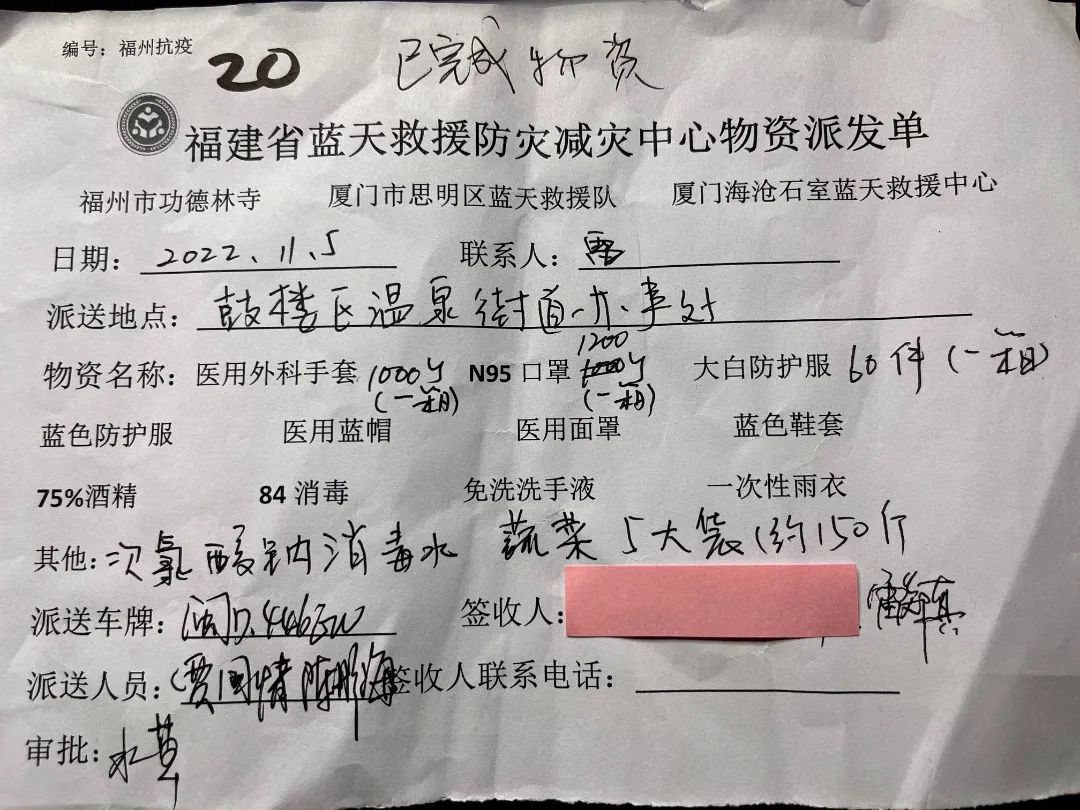 编号：福州抗疫 20 已完成物资
福建省蓝天救援防灾减灾中心物资派发单
福州市功德林寺 厦门市思明区蓝天救援队 厦门海沧石室蓝天救援中心
日期：2022.11.5 联系人：雷
派送地点：鼓楼区温泉街道办事处
1200
物资名称：医用外科手套1000个 N95口罩1000个 大白防护服60件(一箱)
(一箱) (一箱)
蓝色防护服 医用蓝帽 医用面罩 蓝色鞋套
75%酒精 84消毒 免洗洗手液 一次性雨衣
其他：次氯酸钠消毒水 蔬菜5大袋(约150斤
派送车牌：闽D. 签收人：
派送人员： 签收人联系电话：
审批：